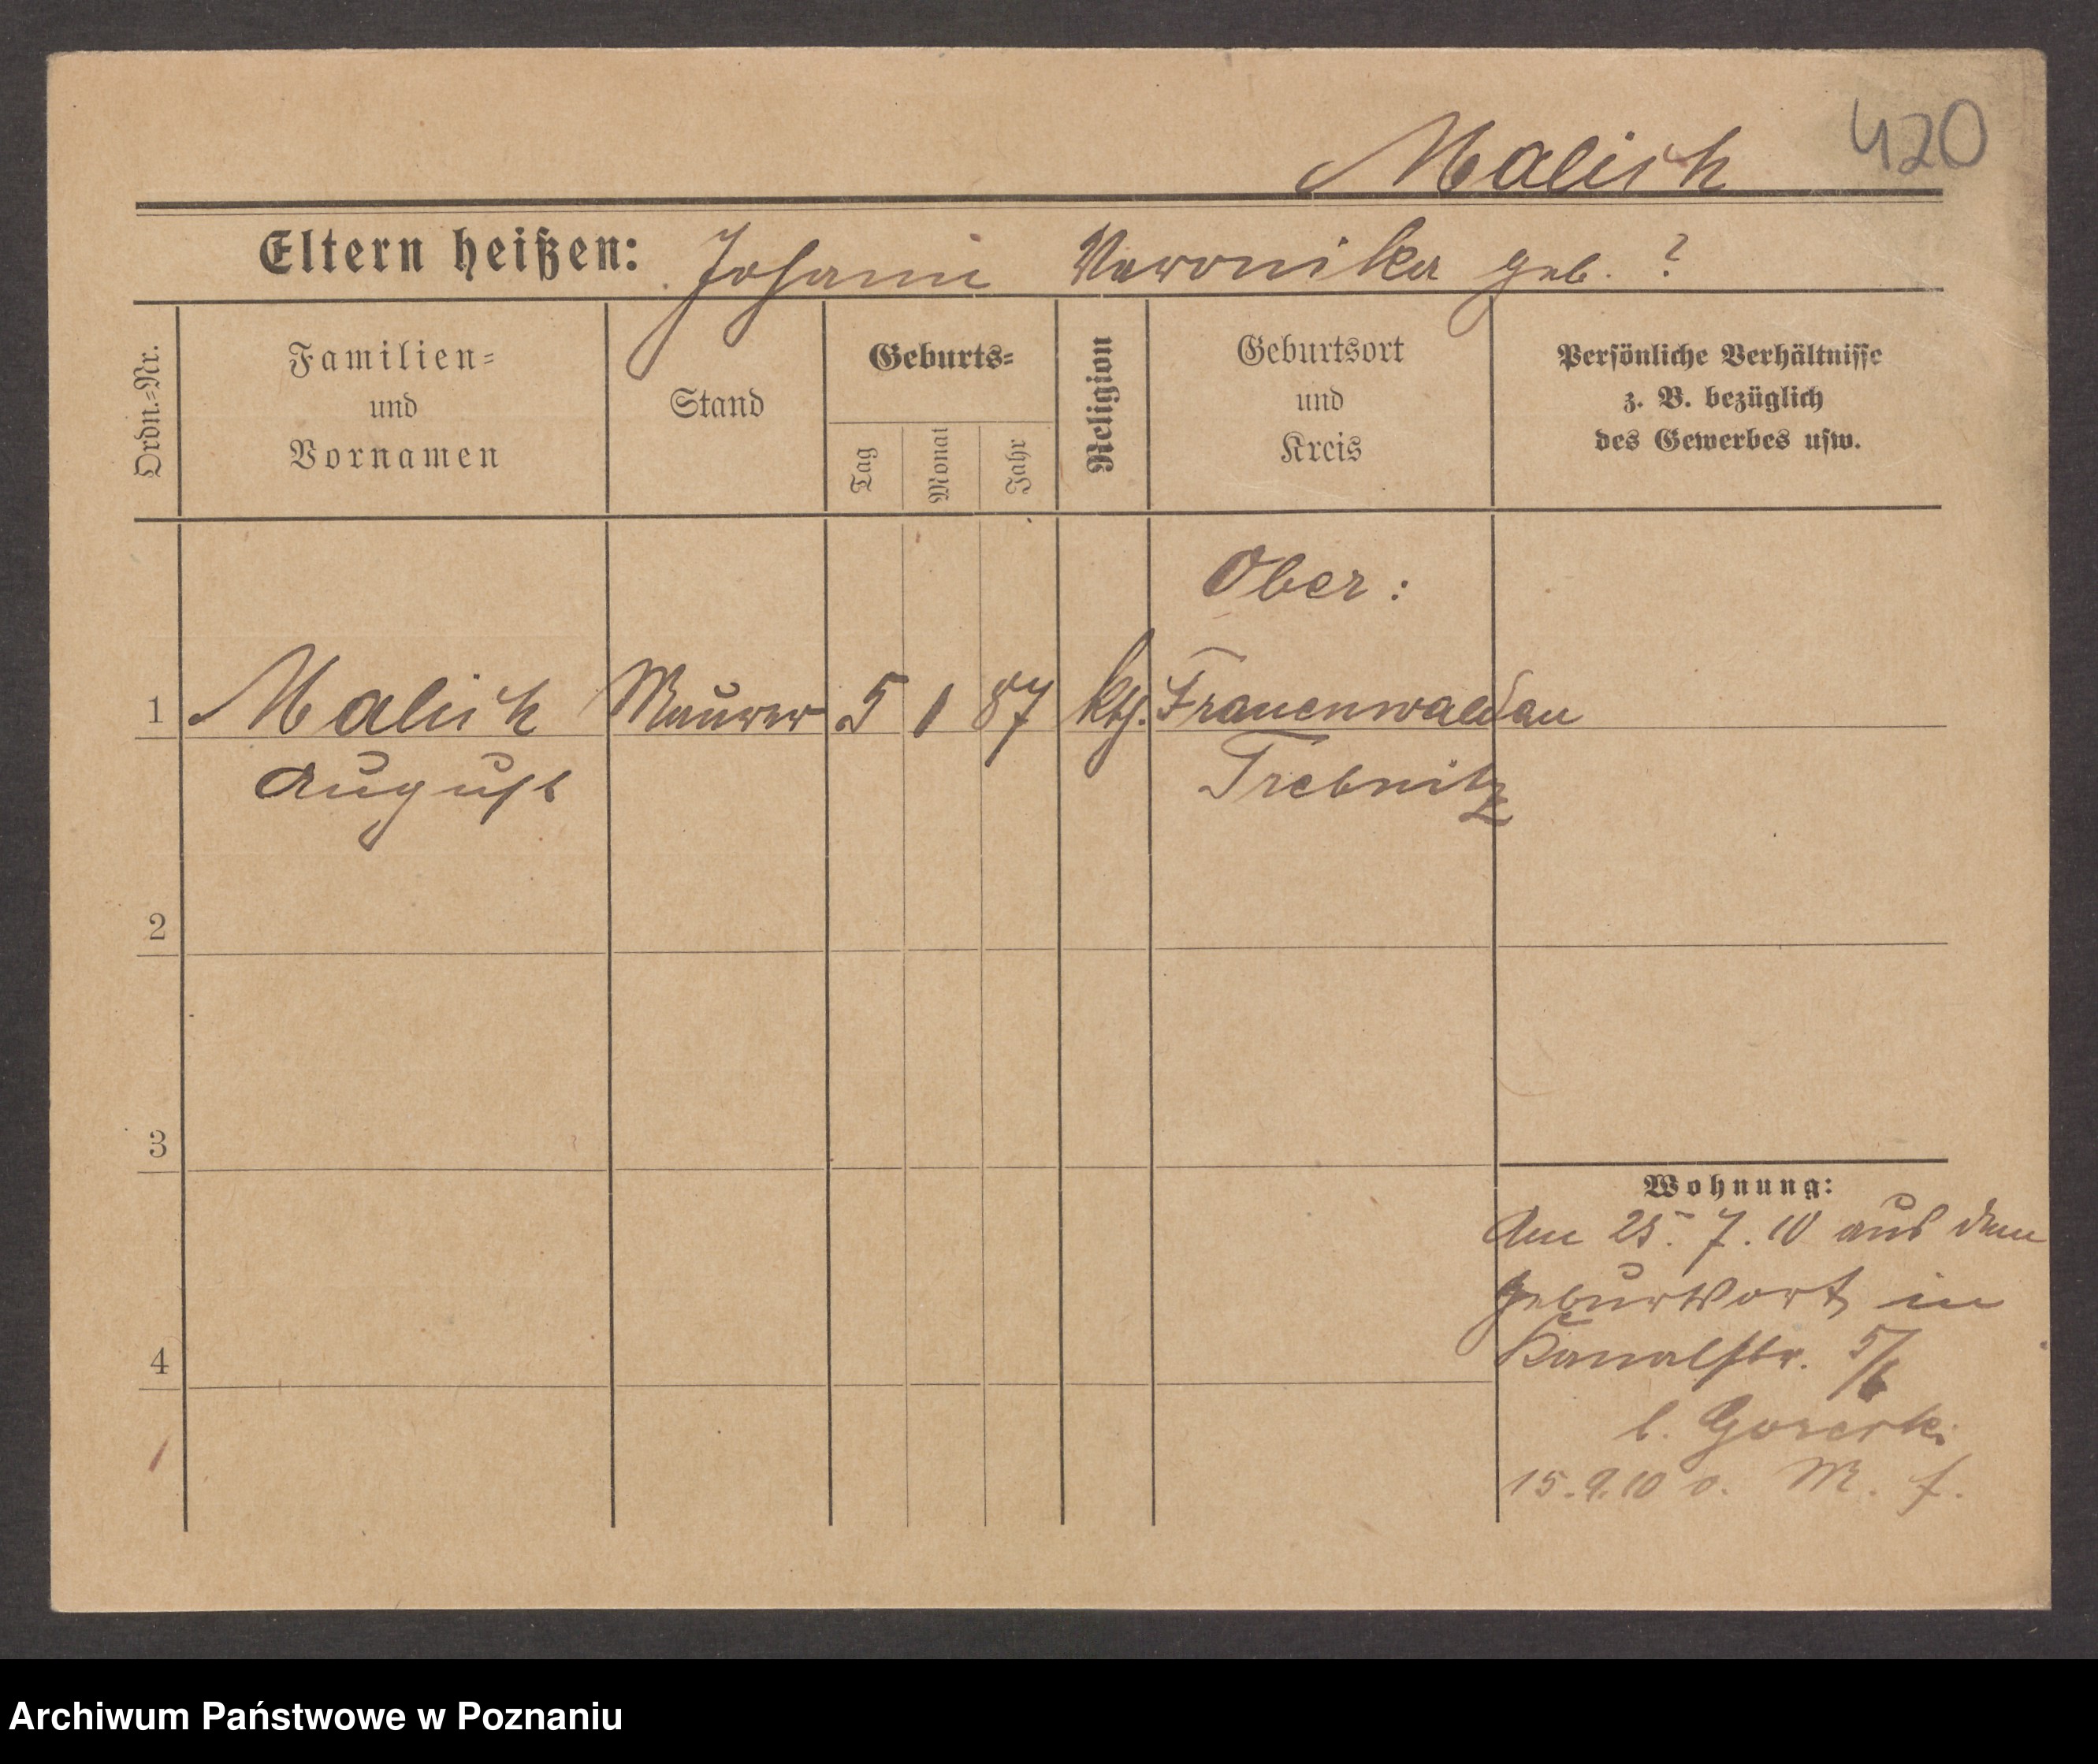 420
Malich
Eltern heißen: Johann Veronika geb. ?
Ordn.=Nr.
Familien=
und
Vornamen
Stand
Geburts=
Tag
Monat
Jahr
Religion
Geburtsort
und
Kreis
Persönliche Verhältnisse
z. B. bezüglich
des Gewerbes usw.
Ober:
1 Malich Maurer 5 1 87 kth. Frauenwaldau
August Trebnitz
2
3
Wohnung:
Am 25.7.10 aus dem
Geburtsort in
4
Kanalstr. 5/6
b. Gorcski
15.9.10 o. M. f.
Archiwum Państwowe w Poznaniu